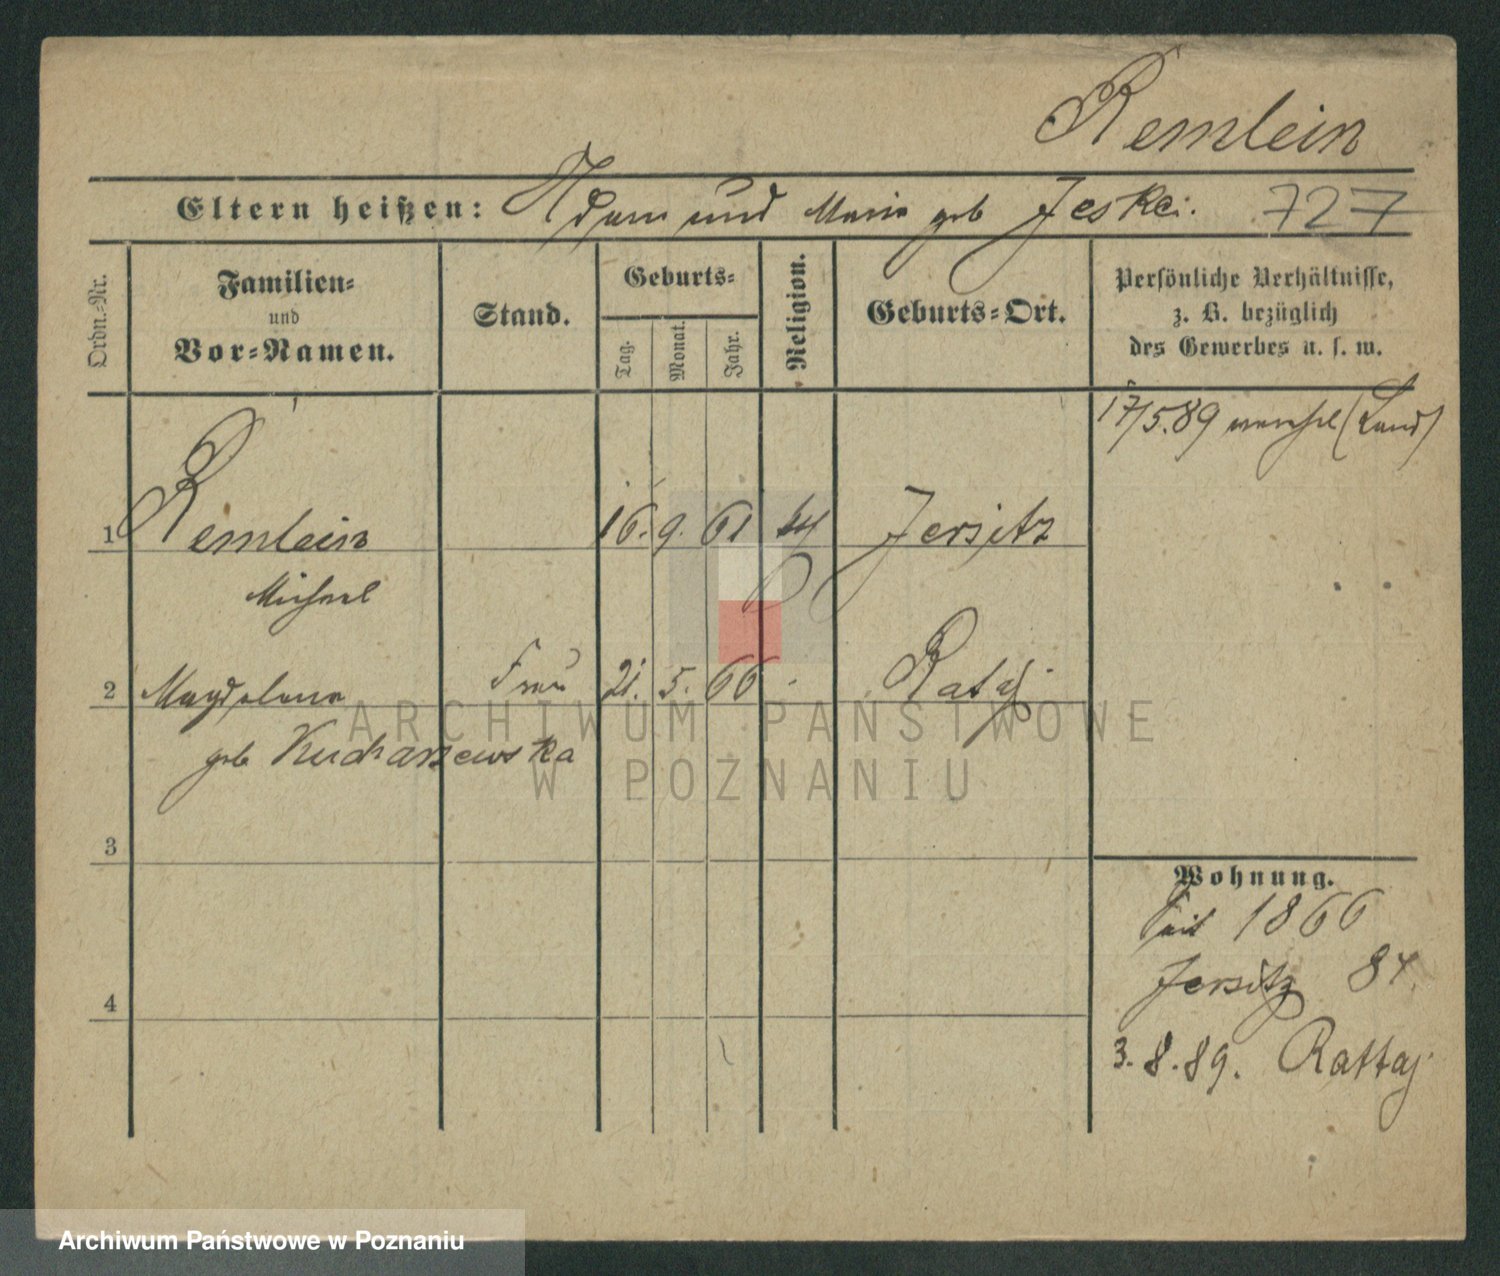 Remlein
Eltern heißen: Adam und Maria geb Jeske. 727
Ordn.-Nr.
Familien-
und
Vor-Namen.
Stand.
Geburts-
Tag.
Monat.
Jahr.
Religion.
Geburts-Ort.
Persönliche Verhältnisse,
z. B. bezüglich
des Gewerbes u. s. w.
17/5.89 (Land)
1 Remlein 16. 9. 61 Jersitz
Michael
2 Magdalena Frau 21. 5. 66 Rataj
geb Kucharzewska
3
4
Wohnung.
seit 1866
Jersitz 84.
3.8.89. Rattaj
ARCHIWUM PAŃSTWOWE
W POZNANIU
Archiwum Państwowe w Poznaniu